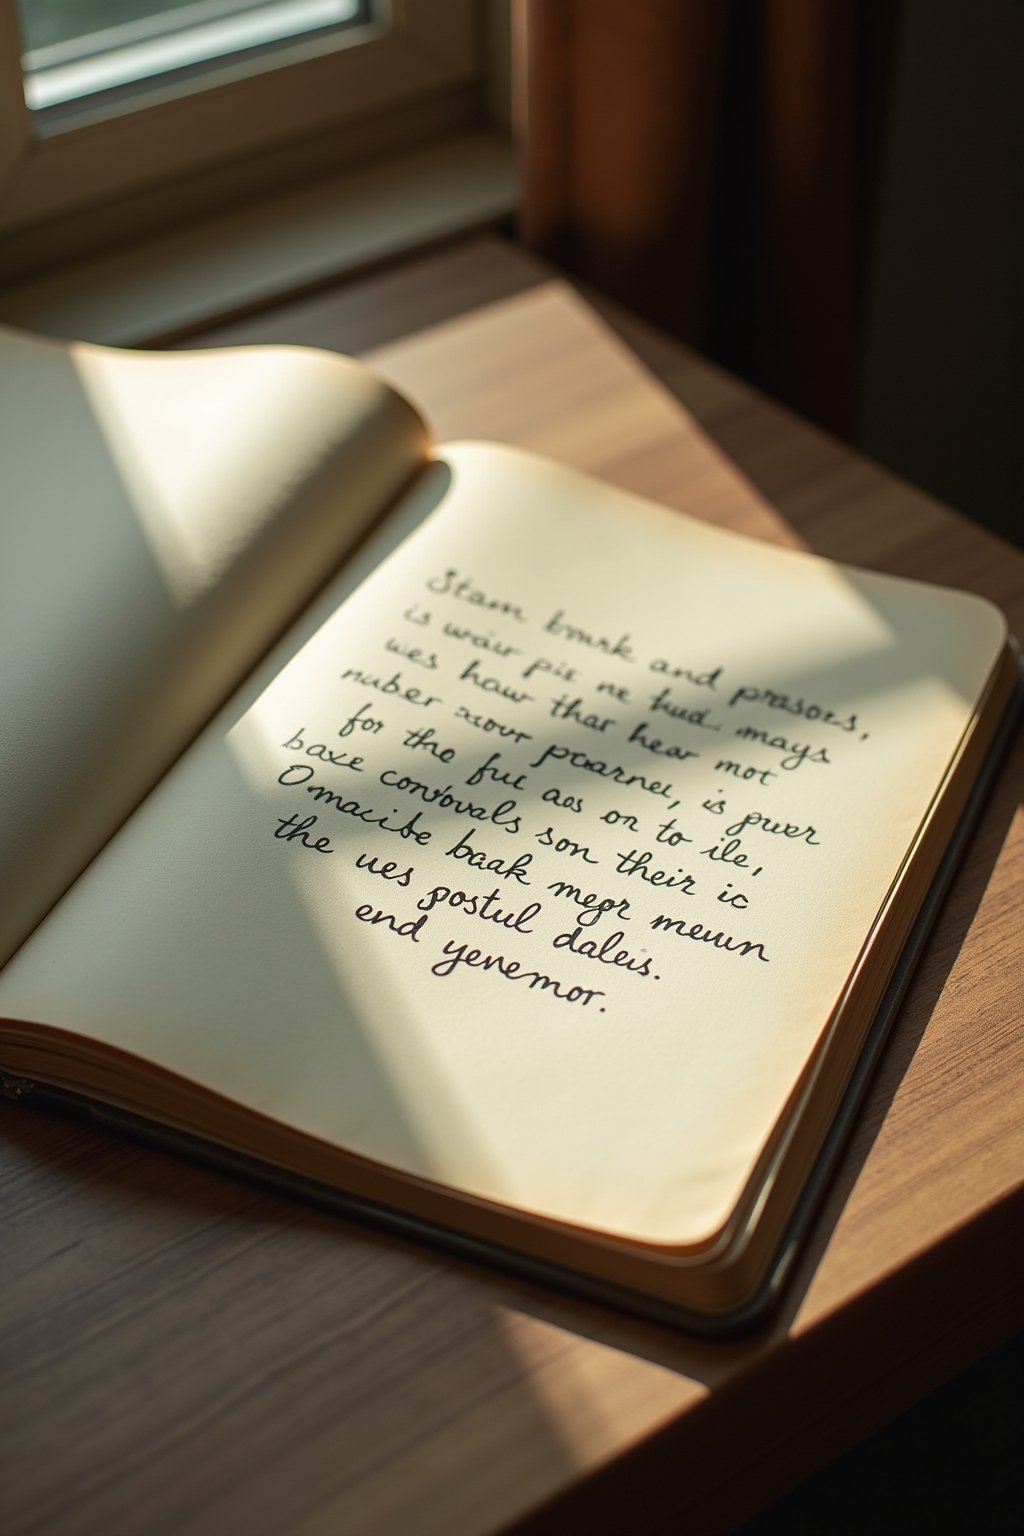 Stam bourk and prasoes,
is wair pis ne hud mays
wes haw thar hear mot
nuber xour pcarnei, is puer
for the fui aas on to ile,
baxe convovals son their ic
Omacibe baak megr meuun
the ues postul daleis.
end yenemor.